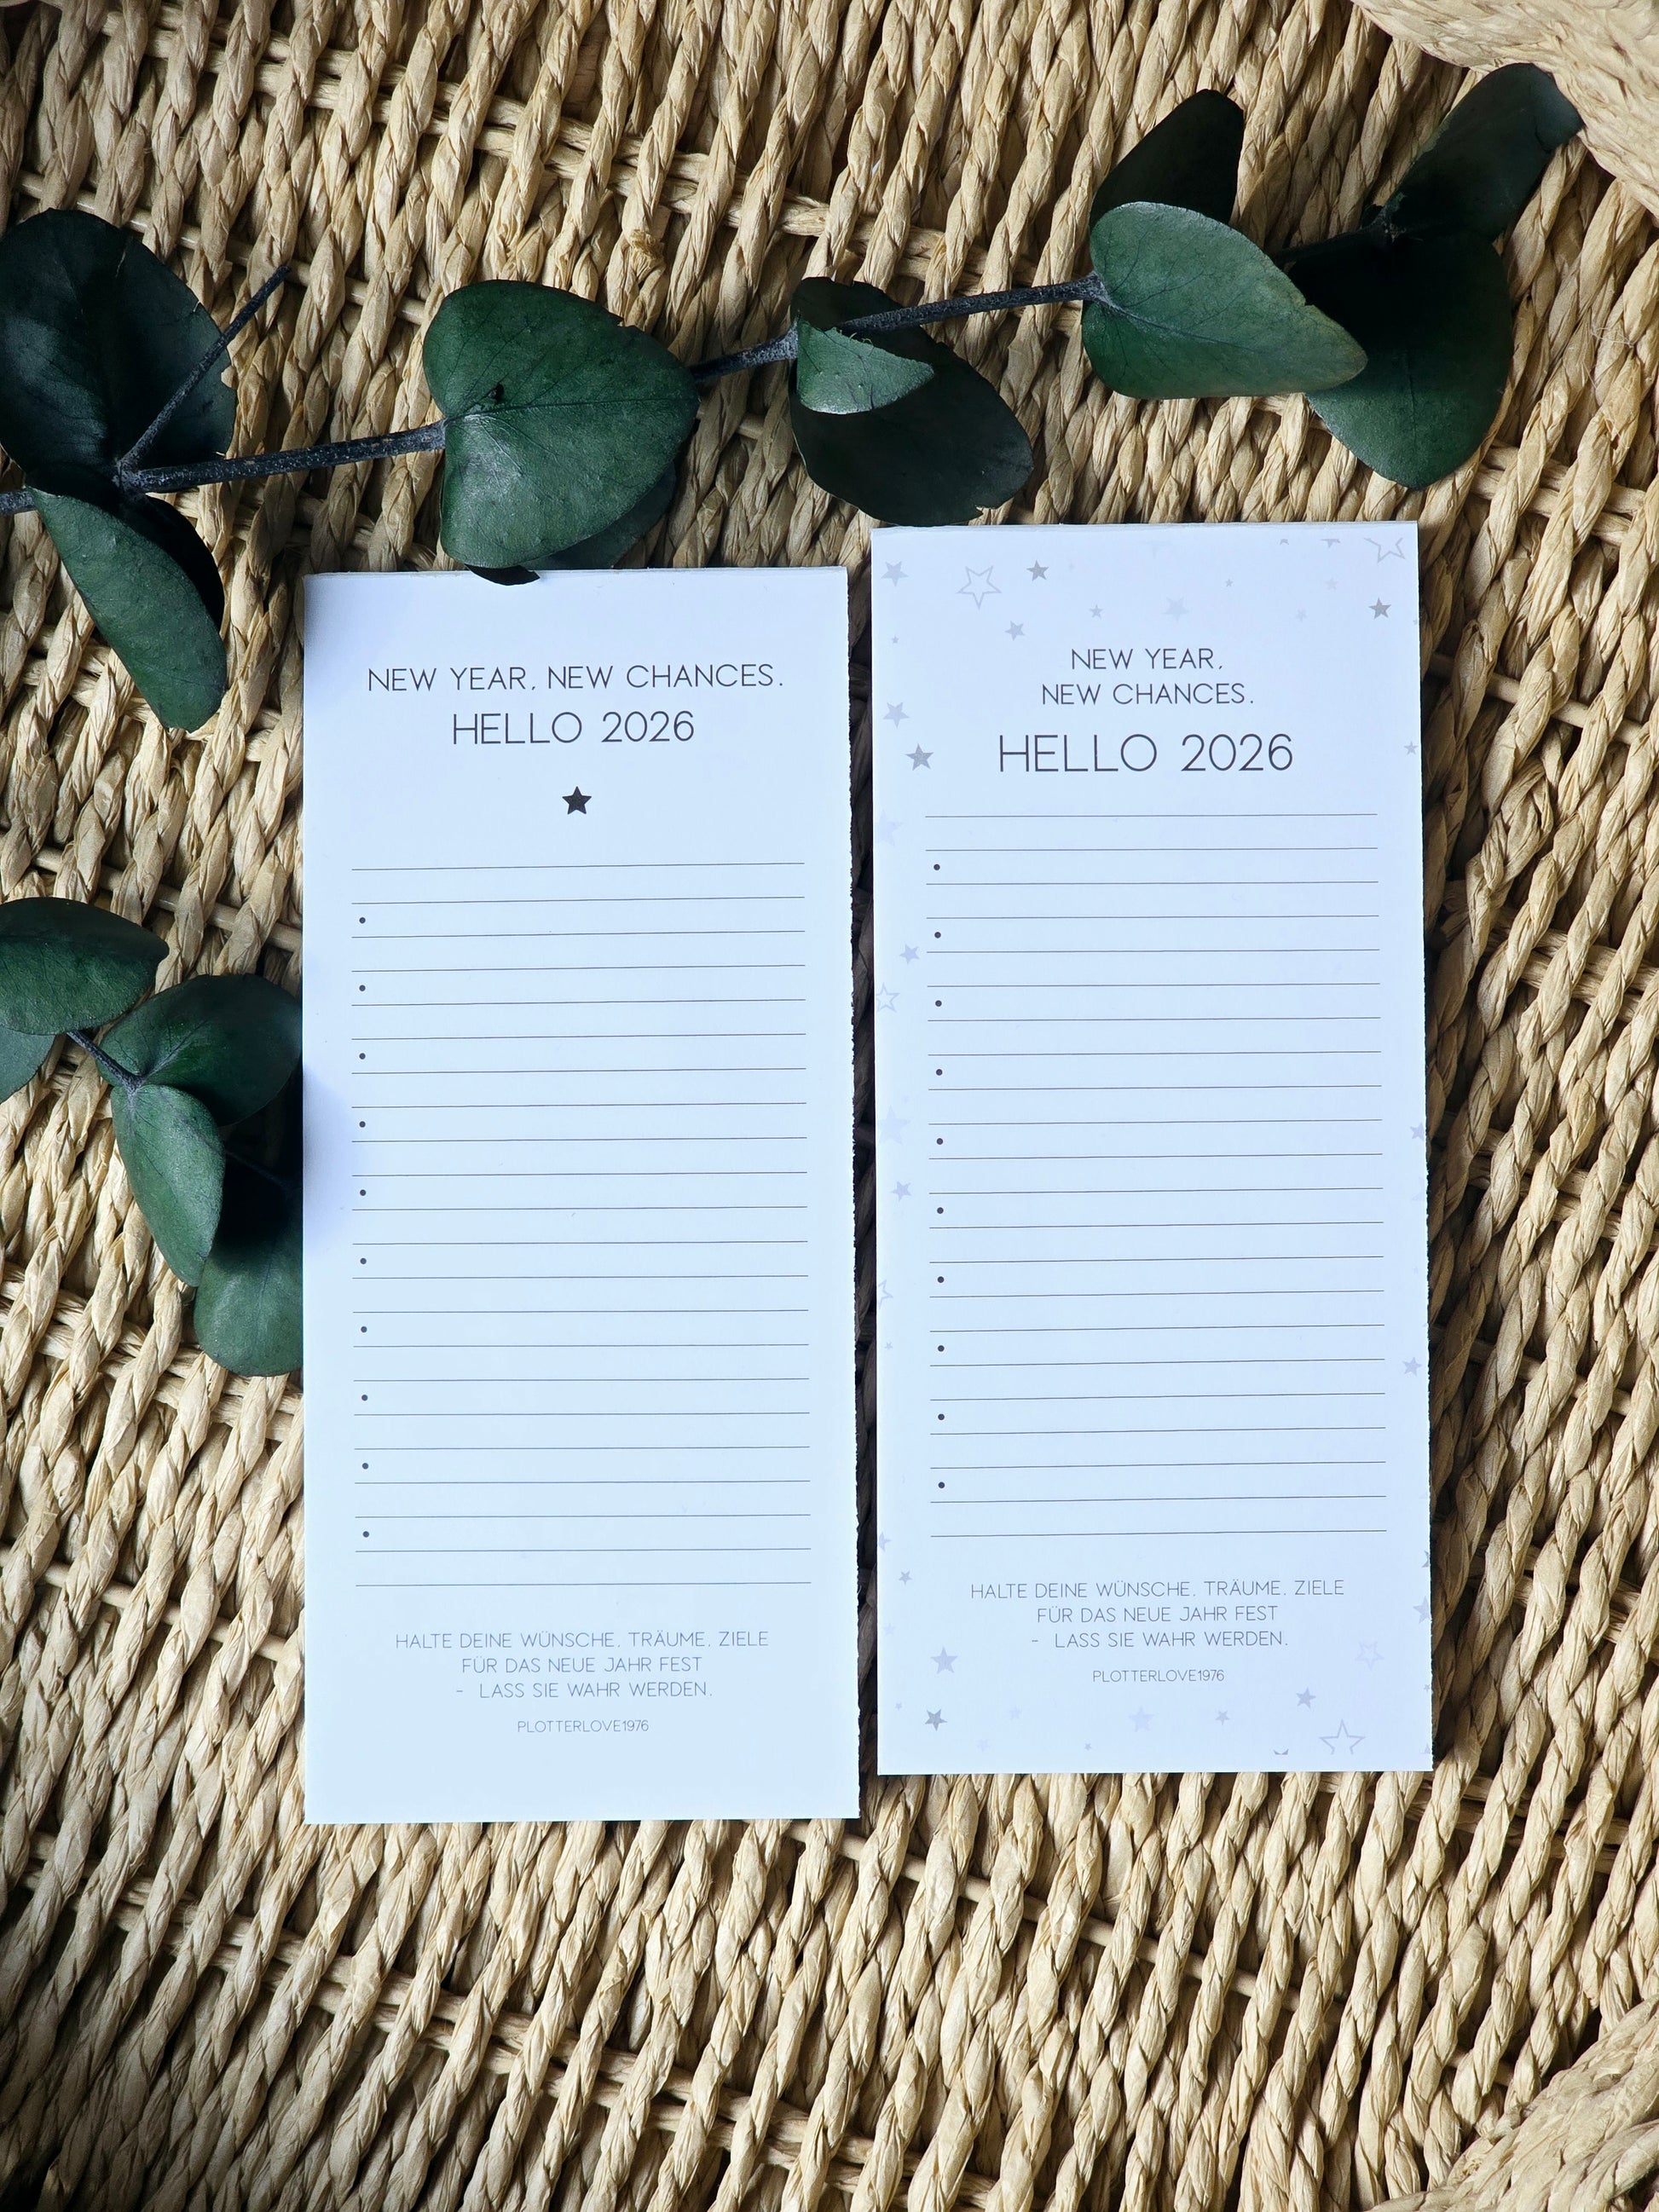 NEW YEAR, NEW CHANCES.
HELLO 2026
HALTE DEINE WÜNSCHE, TRÄUME, ZIELE
FÜR DAS NEUE JAHR FEST
- LASS SIE WAHR WERDEN.
PLOTTERLOVE1976
NEW YEAR,
NEW CHANCES.
HELLO 2026
HALTE DEINE WÜNSCHE, TRÄUME, ZIELE
FÜR DAS NEUE JAHR FEST
- LASS SIE WAHR WERDEN.
PLOTTERLOVE1976